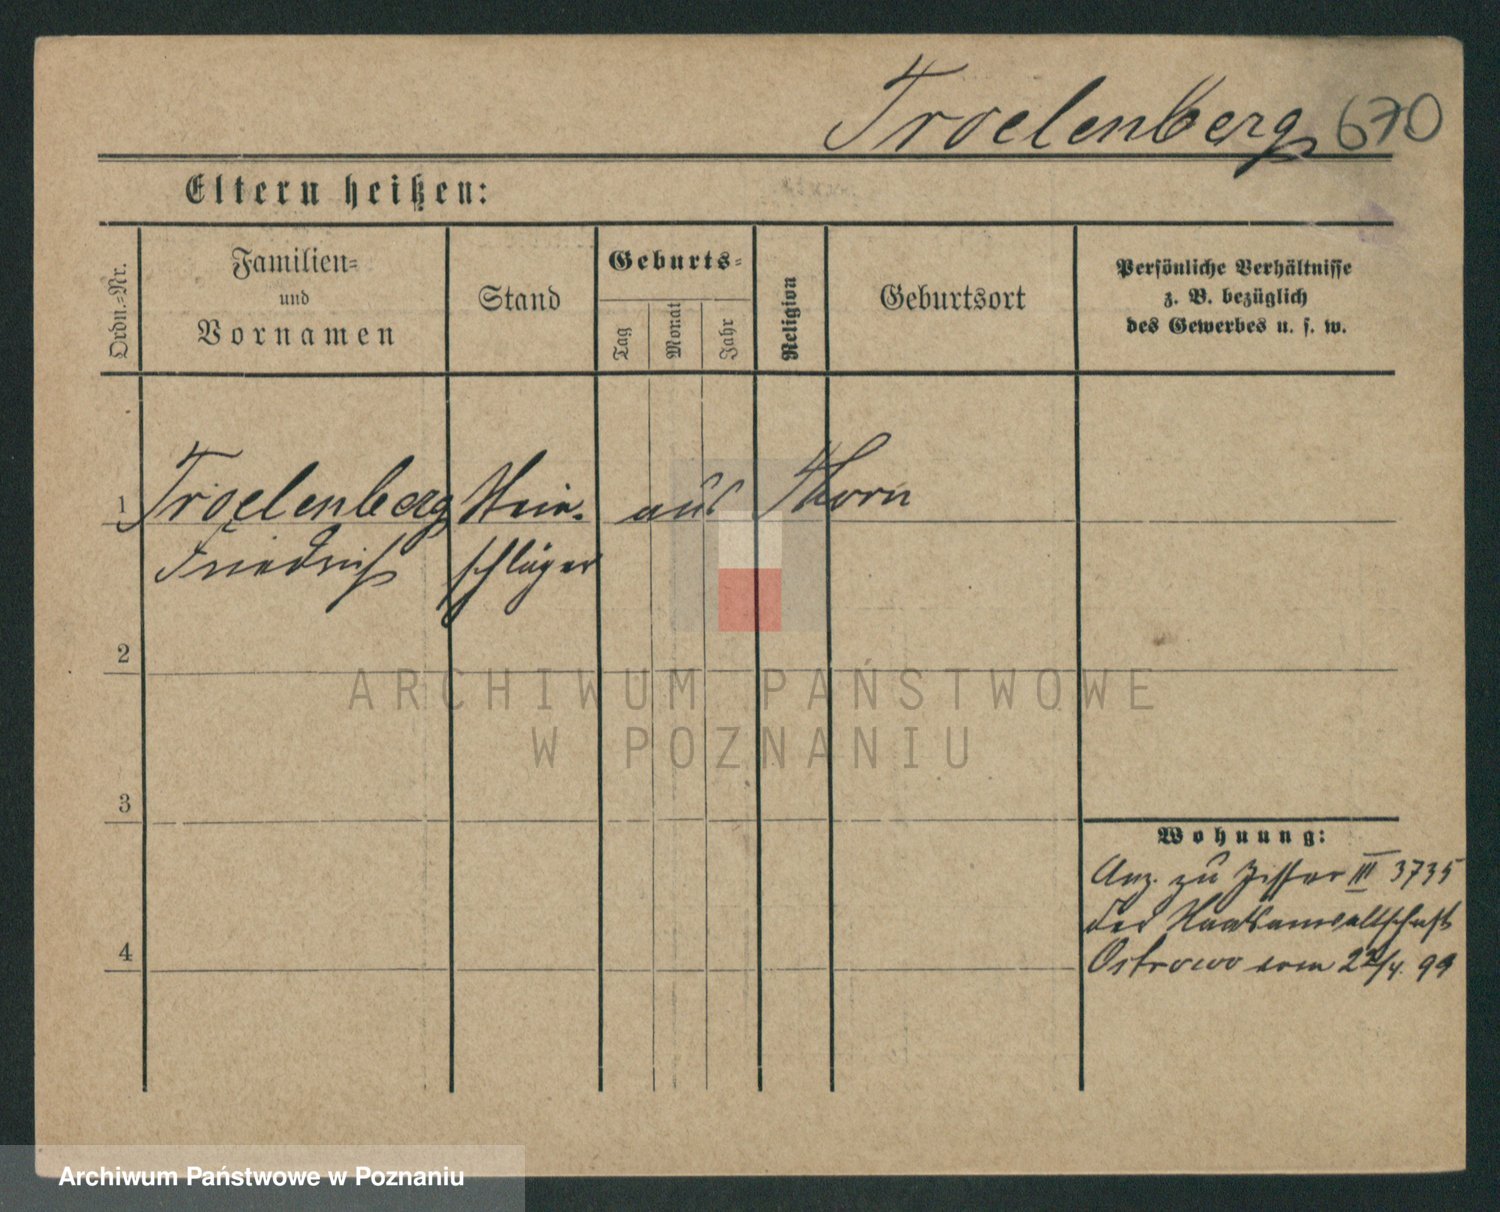 Troelenberg 670
Eltern heißen:
Ordn.=Nr.
Familien=
und
Vornamen
Stand
Geburts=
Tag
Monat
Jahr
Religion
Geburtsort
Persönliche Verhältnisse
z. B. bezüglich
des Gewerbes u. s. w.
1 Troelenberg Stein- aus Thorn
Friedrich schläger
2
3
4
Wohnung:
Anz. zu Ziffer III 3735
der Staatsanwaltschaft
Ostrowo vom 22/4. 99
ARCHIWUM PAŃSTWOWE
W POZNANIU
Archiwum Państwowe w Poznaniu